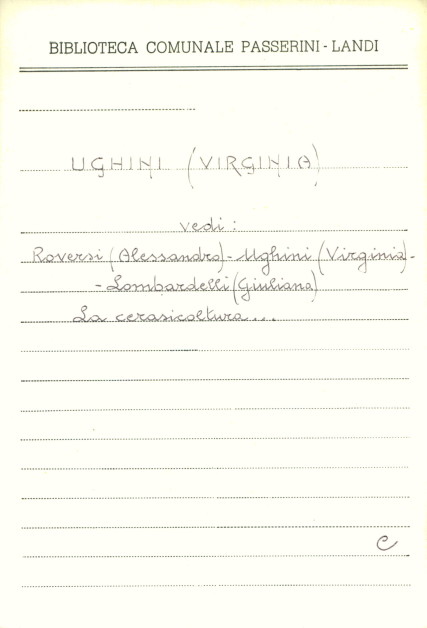 BIBLIOTECA COMUNALE PASSERINI - LANDI
UGHINI (VIRGINIA)
vedi :
Roversi (Alessandra) - Ughini (Virginia) -
- Lombardelli (Giuliana)
La cerasicoltura ...
C